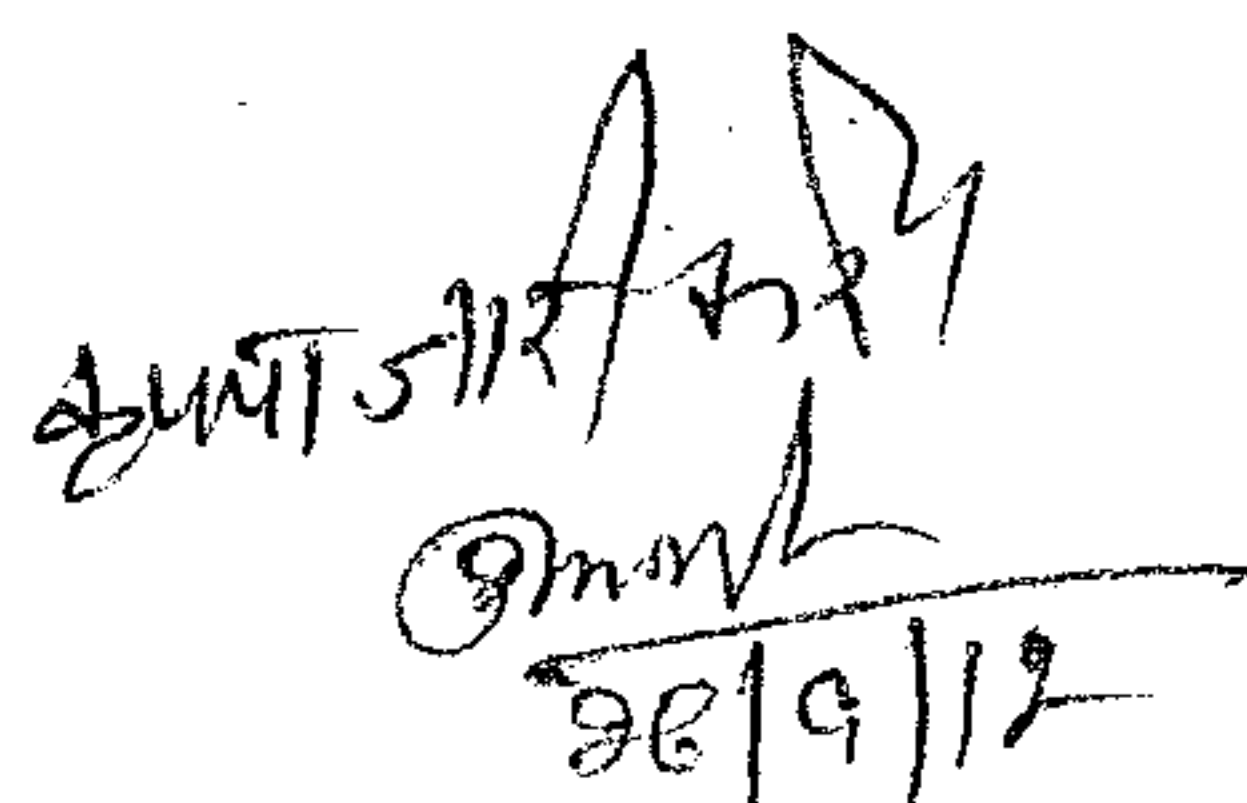 कृपया जारी करें
26/9/12